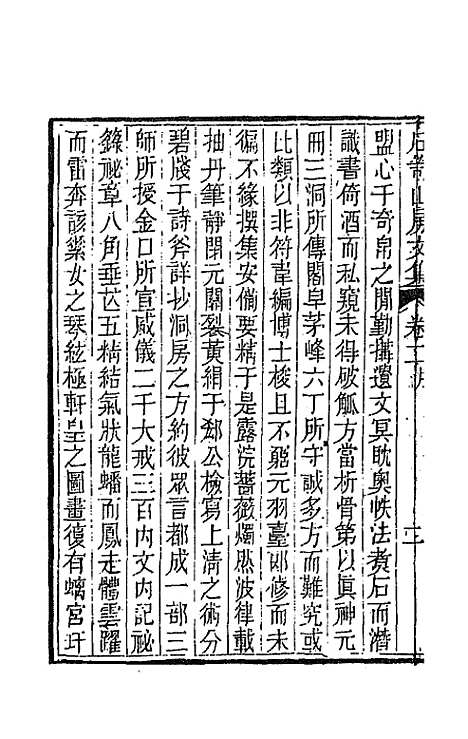 石笥山房文集 卷二
盟心千奇帛之間勤搆遺文冥眈奧帙法煮石而潛
識書倚酒而私窺未得破觚方當析骨第以真神元
冊三洞所傳閣皁茅峰六丁所守誠多方而難究或
比類以非符韋編博士梭且不窮元羽臺郎修而未
徧不緣撰集安備要精于是露浣薔薇燭㷊波律載
抽丹筆靜閉元關裂黃絹于郄公檢寫上清之術分
碧牋于詩斧詳抄洞房之方約彼眾言都成一部三
師所授金口所宣威儀二千大戒三百內文內記祕
籙祕章八角垂芒五精結氣狀龍蟠而鳳走體雲躍
而雷奔該紫女之琴絃極軒皇之圖畫復有蜵宮玕